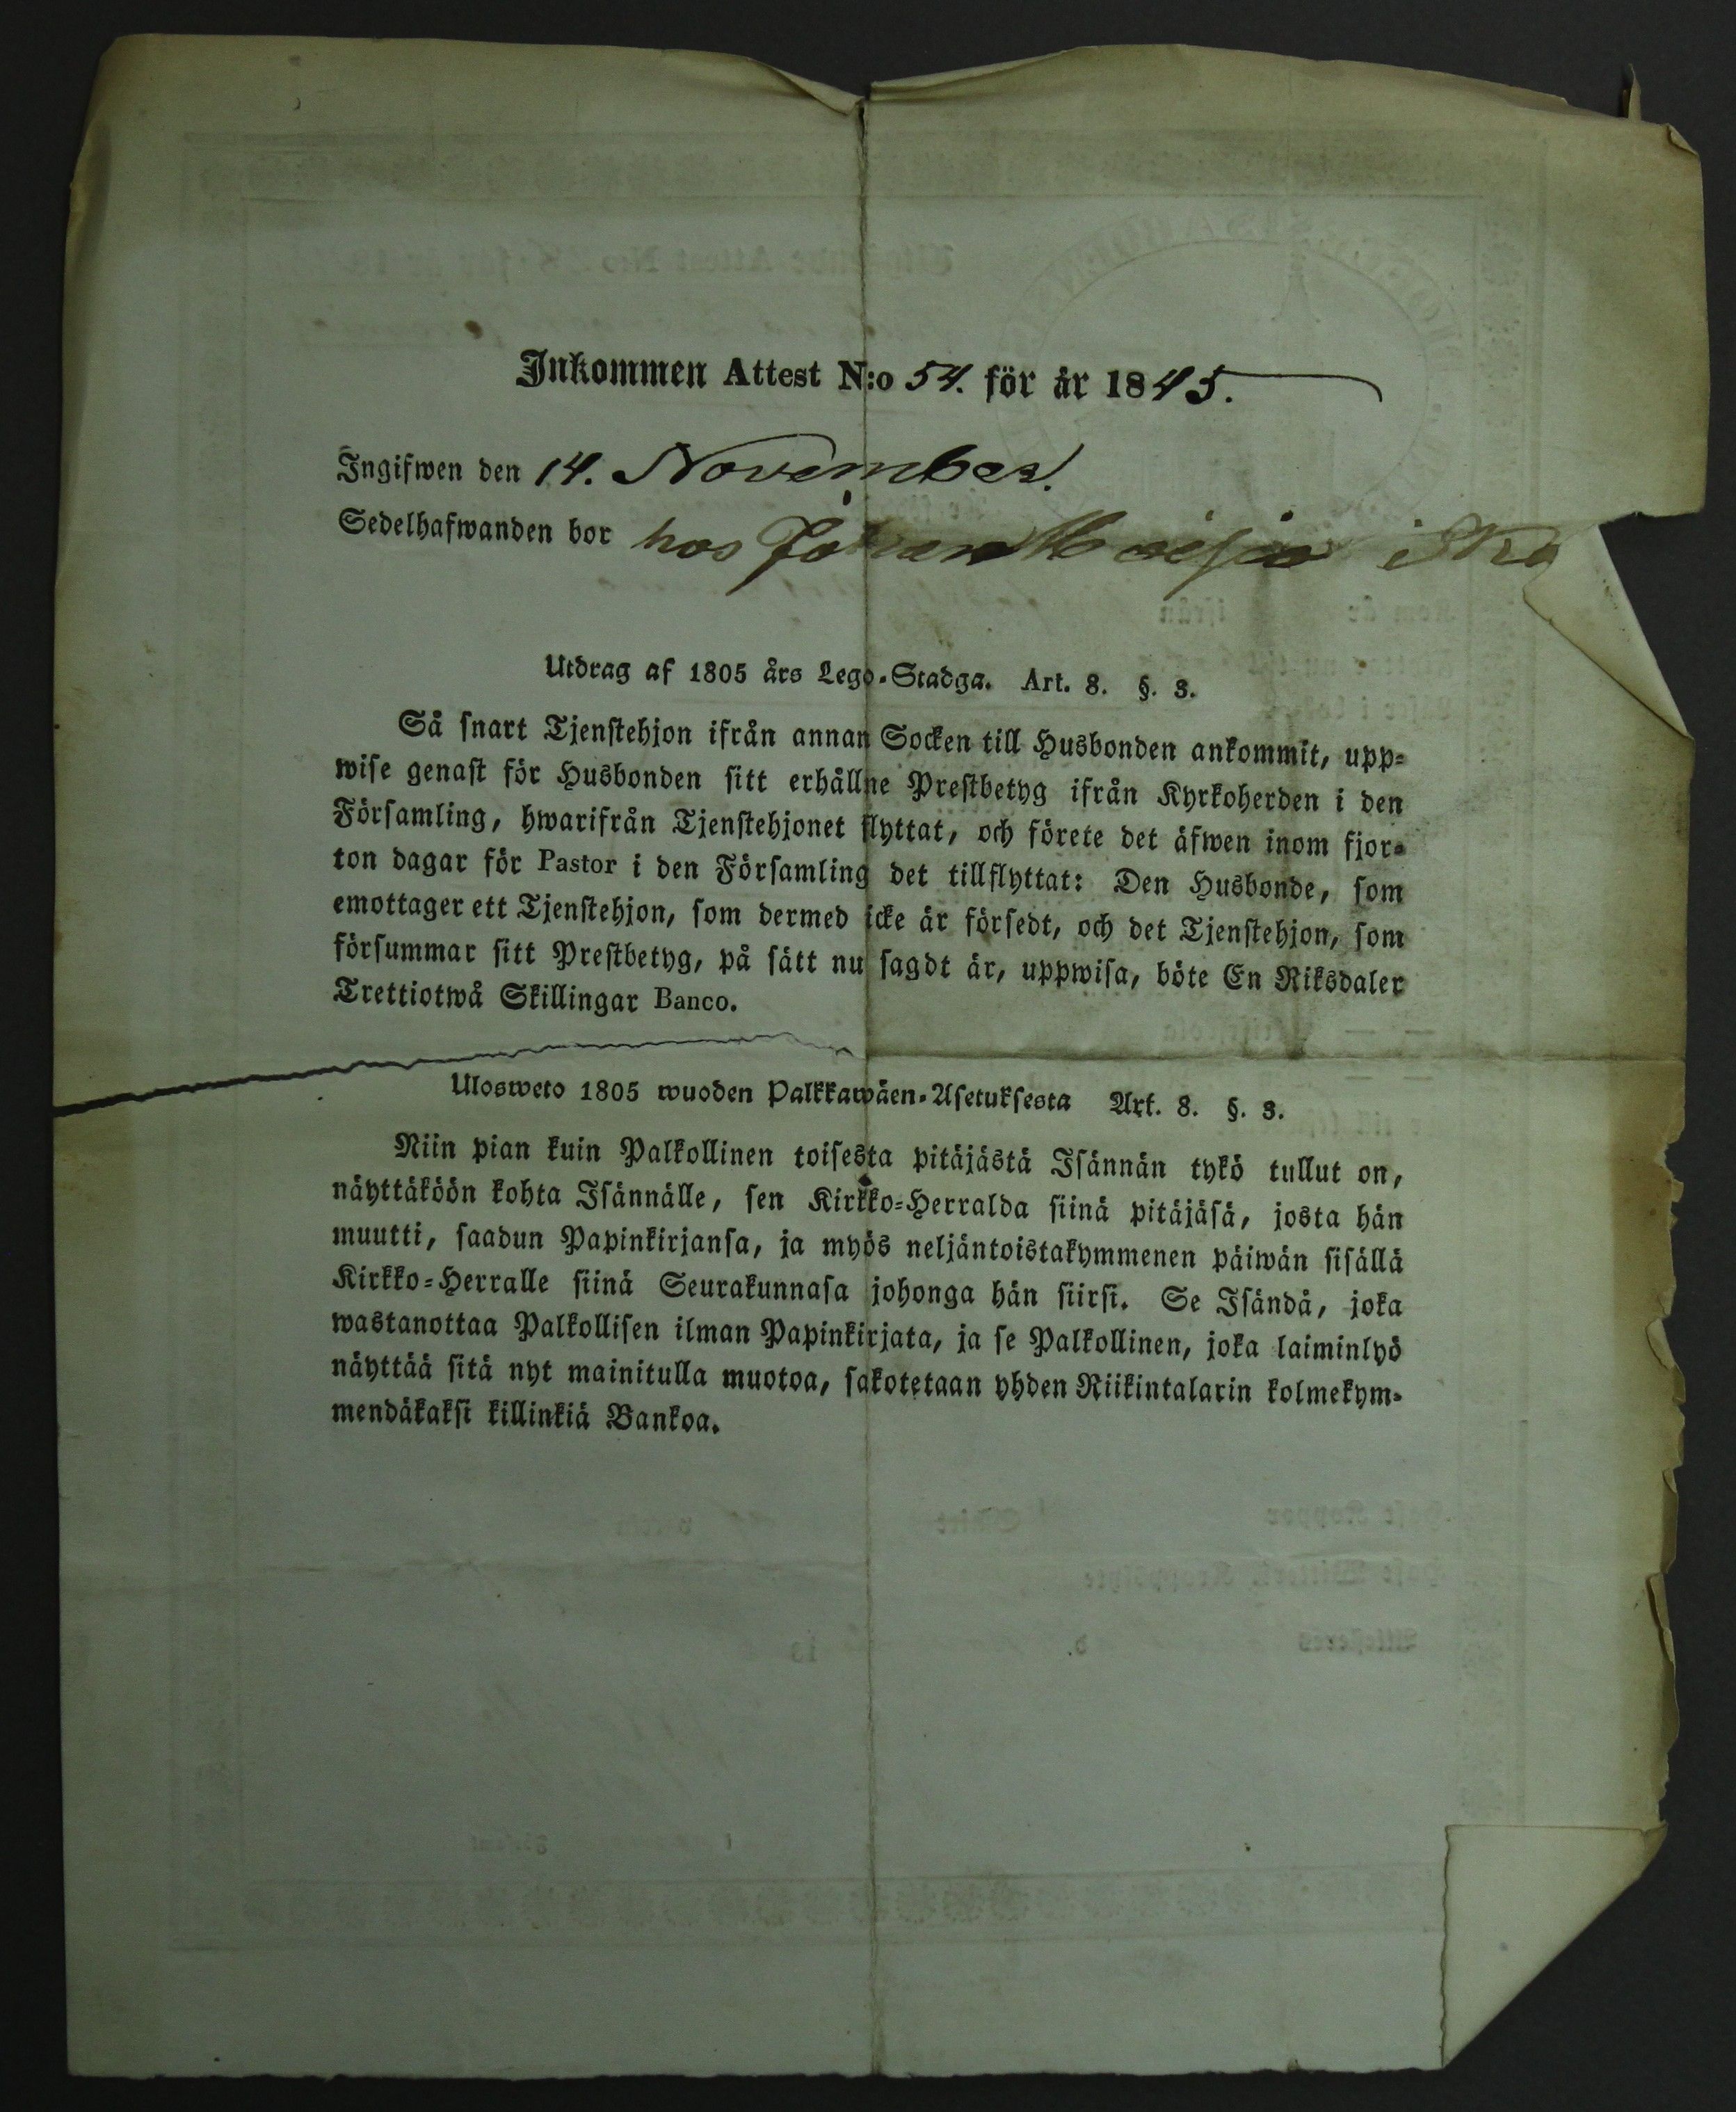 Inkommen Attest N:o 54. för år 1845.
Ingifwen den 14. November.
Sedelhafwanden bor hos Johan
Utdrag af 1805 års Lego-Stadga. Art. 8. §. 3.
Så snart Tjenstehjon ifrån annan Socken till Husbonden ankommit, upp-
wise genast för Husbonden sitt erhållne Prestbetyg ifrån Kyrkoherden i den
Församling, hwarifrån Tjenstehjonet flyttat, och förete det äfwen inom fjor-
ton dagar för Pastor i den Församling det tillflyttat: Den Husbonde, som
emottager ett Tjenstehjon, som dermed icke är försedt, och det Tjenstehjon, som
försummar sitt Prestbetyg, på sätt nu sagdt är, uppwisa, böte En Riksdaler
Trettiotwå Skillingar Banco.
Ulosweto 1805 wuoden Palkkawäen-Asetuksesta Art. 8. §. 3.
Niin pian kuin Palkollinen toisesta pitäjästä Isännän tykö tullut on,
näyttäköön kohta Isännälle, sen Kirkko-Herralda siinä pitäjäsä, josta hän
muutti, saadun Papinkirjansa, ja myös neljäntoistakymmenen päiwän sisällä
Kirkko-Herralle siinä Seurakunnasa johonga hän siirsi. Se Isändä, joka
wastanottaa Palkollisen ilman Papinkirjata, ja se Palkollinen, joka laiminlyö
näyttää sitä nyt mainitulla muotoa, sakotetaan yhden Riikintalarin kolmekym-
mendäkaksi killinkiä Bankoa.